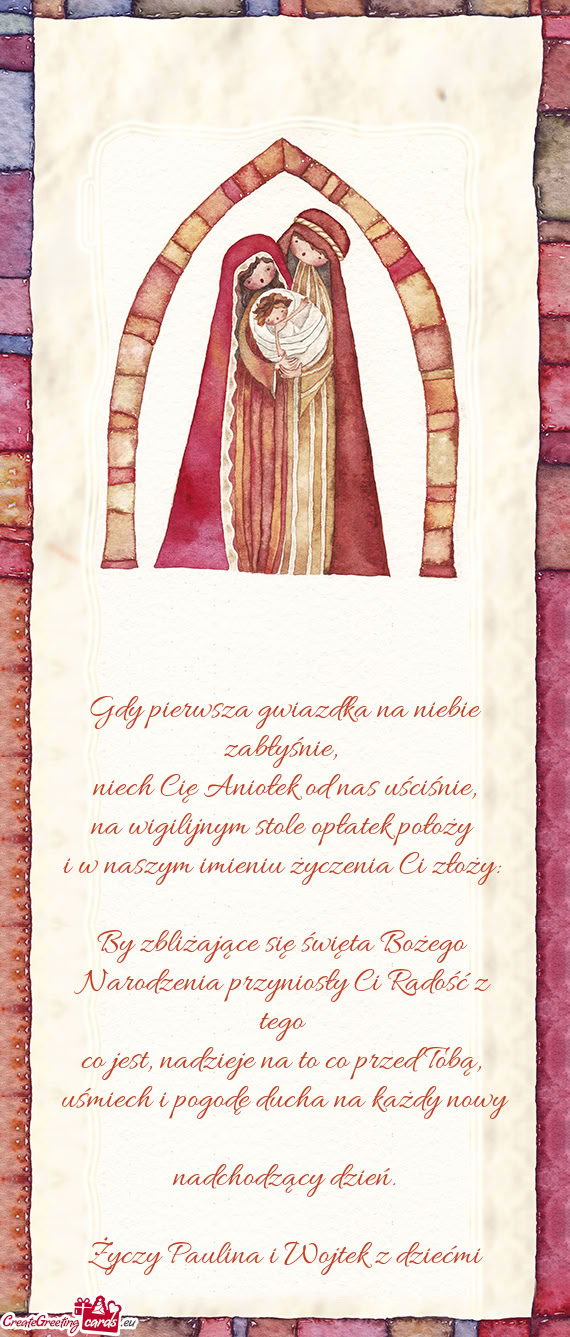 Gdy pierwsza gwiazdka na niebie
zabłyśnie,
niech Cię Aniołek od nas uściśnie,
na wigilijnym stole opłatek położy
i w naszym imieniu życzenia Ci złoży:
By zbliżające się święta Bożego
Narodzenia przyniosły Ci Radość z
tego
co jest, nadzieje na to co przed Tobą,
uśmiech i pogodę ducha na każdy nowy
nadchodzący dzień.
Życzy Paulina i Wojtek z dziećmi
CreateGreetingcards.eu